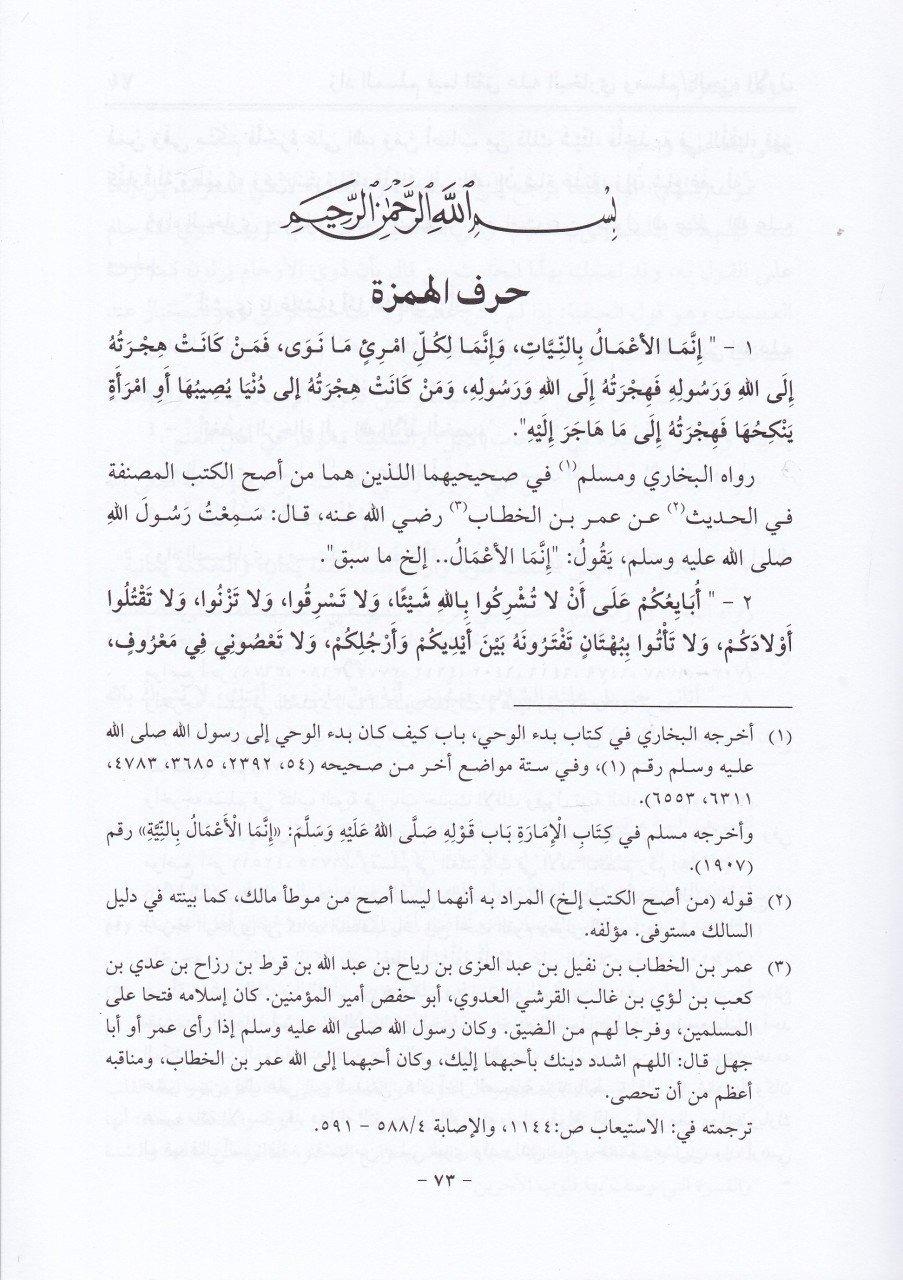 بِسْمِ اللَّهِ الرَّحْمَٰنِ الرَّحِيمِ
حرف الهمزة
١ - " إِنَّمَا الأَعْمَالُ بِالنِّيَّاتِ، وَإِنَّمَا لِكُلِّ امْرِئٍ مَا نَوَى، فَمَنْ كَانَتْ هِجْرَتُهُ
إِلَى اللهِ وَرَسُولِهِ فَهِجْرَتُهُ إِلَى اللهِ وَرَسُولِهِ، وَمَنْ كَانَتْ هِجْرَتُهُ إلى دُنْيَا يُصِيبُهَا أَوِ امْرَأَةٍ
يَنْكِحُهَا فَهِجْرَتُهُ إِلَى مَا هَاجَرَ إِلَيْهِ".
رواه البخاري ومسلم(١) في صحيحيهما اللذين هما من أصح الكتب المصنفة
في الحديث(٢) عن عمر بن الخطاب(٣) رضي الله عنه، قال: سَمِعْتُ رَسُولَ اللهِ
صلى الله عليه وسلم، يَقُولُ: "إِنَّمَا الأَعْمَالُ.. إلخ ما سبق".
٢ - " أُبَايِعُكُمْ عَلَى أَنْ لا تُشْرِكُوا بِاللهِ شَيْئًا، وَلا تَسْرِقُوا، وَلا تَزْنُوا، وَلا تَقْتُلُوا
أَوْلادَكُمْ، وَلا تَأْتُوا بِبُهْتَانٍ تَفْتَرُونَهُ بَيْنَ أَيْدِيكُمْ وَأَرْجُلِكُمْ، وَلا تَعْصُونِي فِي مَعْرُوفٍ،
(١) أخرجه البخاري في كتاب بدء الوحي، باب كيف كان بدء الوحي إلى رسول الله صلى الله
عليه وسلم رقم (١)، وفي ستة مواضع أخر من صحيحه (٥٤، ٢٣٩٢، ٣٦٨٥، ٤٧٨٣،
٦٣١١، ٦٥٥٣).
وأخرجه مسلم في كِتَابِ الإِمَارَةِ بَاب قَوْلِهِ صَلَّى اللهُ عَلَيْهِ وَسَلَّمَ: «إِنَّمَا الْأَعْمَالُ بِالنِّيَّةِ» رقم
(١٩٠٧).
(٢) قوله (من أصح الكتب إلخ) المراد به أنهما ليسا أصح من موطأ مالك، كما بينته في دليل
السالك مستوفى. مؤلفه.
(٣) عمر بن الخطاب بن نفيل بن عبد العزى بن رياح بن عبد الله بن قرط بن رزاح بن عدي بن
كعب بن لؤي بن غالب القرشي العدوي، أبو حفص أمير المؤمنين. كان إسلامه فتحا على
المسلمين، وفرجا لهم من الضيق. وكان رسول الله صلى الله عليه وسلم إذا رأى عمر أو أبا
جهل قال: اللهم اشدد دينك بأحبهما إليك، وكان أحبهما إلى الله عمر بن الخطاب، ومناقبه
أعظم من أن تحصى.
ترجمته في: الاستيعاب ص:١١٤٤، والإصابة ٥٨٨/٤ - ٥٩١.
- ٧٣ -